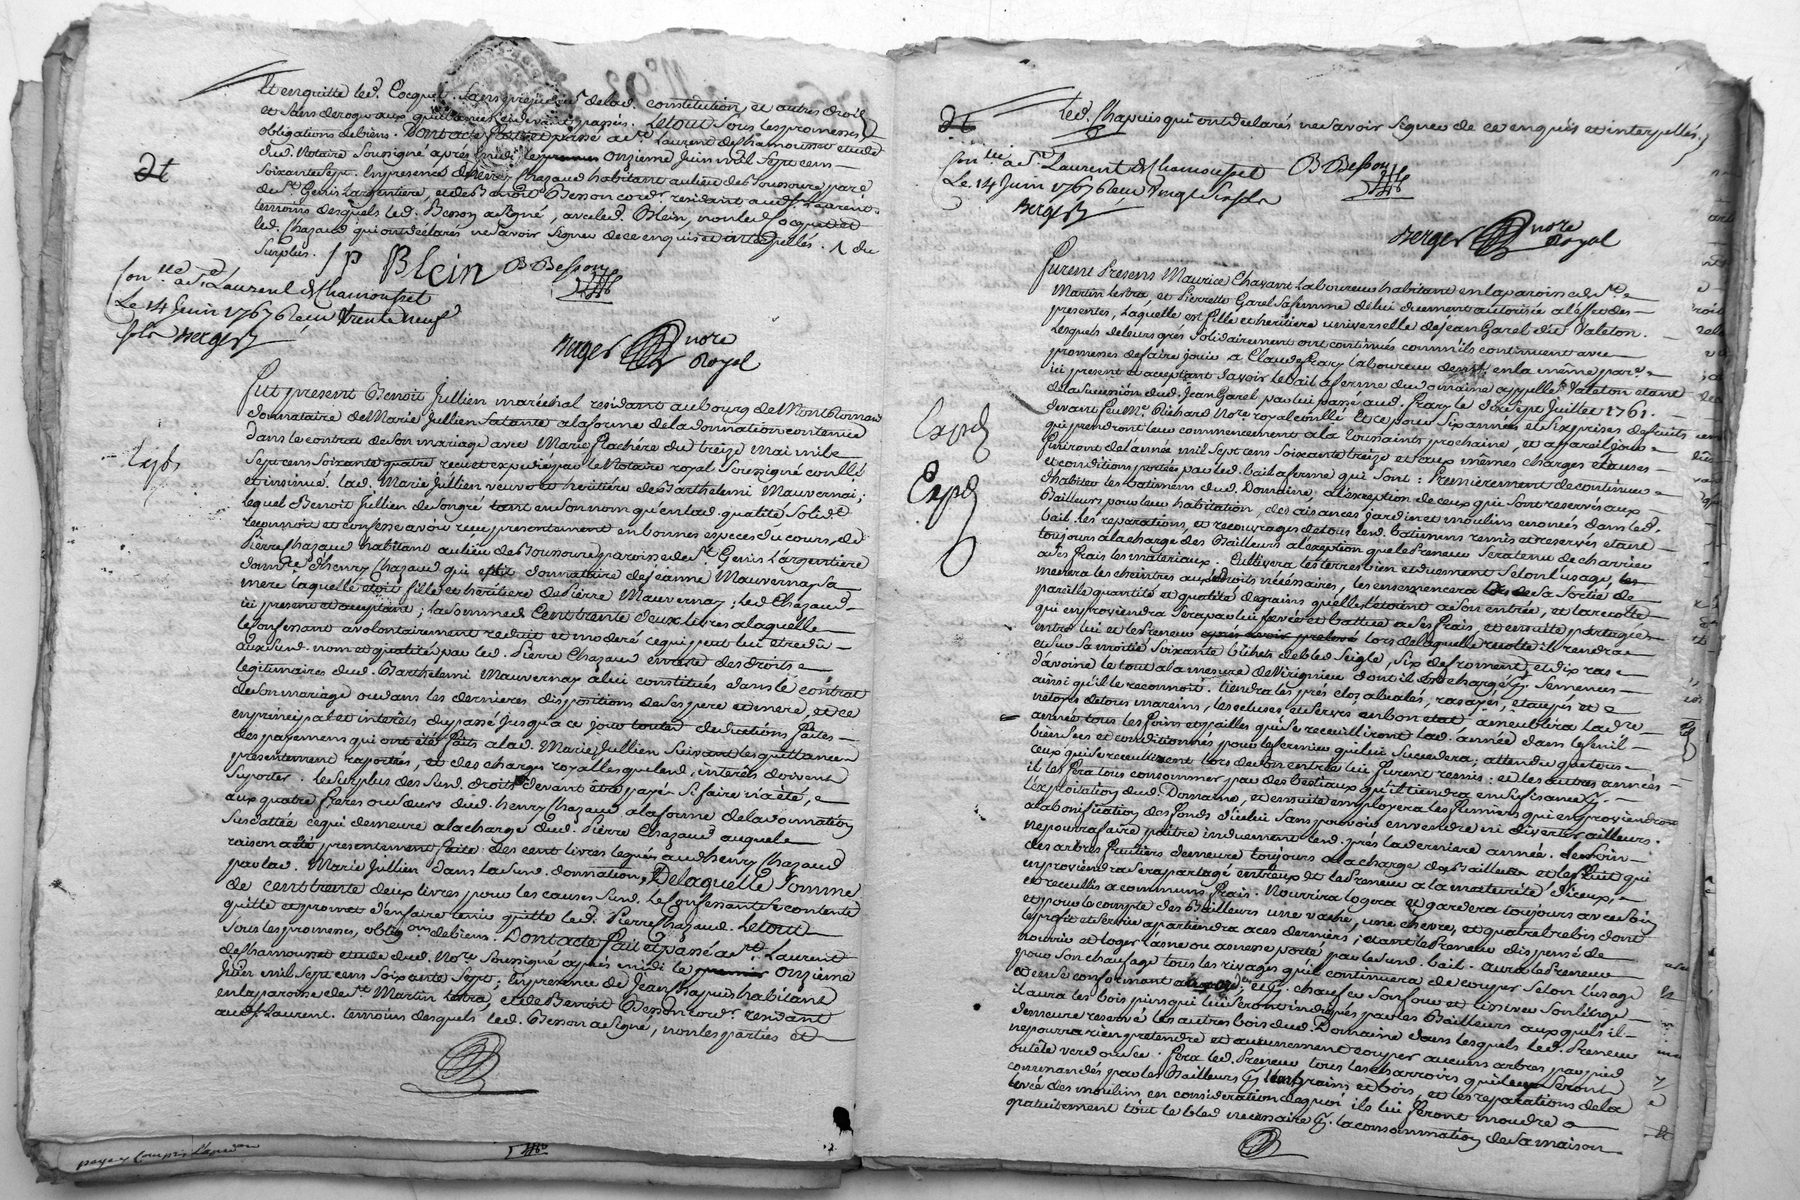 et en quitte led. Cocquet. Sans prejud. de lad. constitution, et autres droits
et Sans deroger aux quittances cydevant passés. Letout Sous les promesses
obligations de biens. Dont acte fait et passé a St. Laurent de Chamousset etude
dud. Notaire Soussigné aprés midi le onzieme Juin mil Sept cens
Soixante Sept. En presence d'henry Chazaud habitant au lieu de Toussoure paré
de St. Genis Largentiere, et de Benoit Besson cordr. residant aud. St. Laurent
temoins desquels led. Besson a Signé, avec led. Blein, non led. Cocquet et
led. Chazaud qui ont declarés ne Savoir Signer de ce enquis et interpellés. du
Surplus.
Jp Blein B Besson
Con.llé a St. Laurent d Chamousset
Le 14 Juin 1767 Receu trente neuf
sols Berger
Berger nore Royal
Dt
Fut present Benoit Jullien maréchal residant au bourg de Montromand
donnataire de Marie Jullien Sa tante a la forme de la donnation contenue
dans le contrat de Son mariage avec Marie Flachére du treize Mai mil
Sept cens Soixante quatre receu et expedié par le Notaire royal Soussigné conllé
et insinué. lad. Marie Jullien veuve et heritiére de Barthelemi Mauvernai;
lequel Benoit Jullien de Son gré tant en Son nom qu'en lad. qualité Solid.t
reconnoit et confesse avoir receu presentement en bonnes especes du cours, de
Pierre Chazaud habitant au lieu de Toussoure paroisse de St. Genis Largentiere
donn.re d'henry Chazaud qui etoit donnataire de Jeanne Mauvernay Sa
mere laquelle etoit fille et heritiére de Pierre Mauvernay; led. Chazaud
ici present et acceptant; la Somme de Cent trente deux livres a laquelle
le confessant a volontairement reduit et moderé ce qui peut lui etre dû
aux Susd. nom et qualité par led. Pierre Chazaud en reste des droits
legitimaires dud. Barthelemi Mauvernay a lui constitués dans le contrat
de Son mariage ou dans les dernieres dispositions de Ses pere et mere, et ce
en principal et interêts du passé jusqu'a ce jour toutes deductions faites
des payemens qui ont été faits a lad. Marie Jullien Suivant les quittances
presentement raportées, et des charges royalles que lesd. interêts doivent
Suporter. le Surplus des Susd. droits devant être payé Si fait n'a été,
aux quatre freres ou Sœurs dud. henry Chazaud a la forme de la donnation
Susdattée ce qui demeure a la charge dud. Pierre Chazaud auquel
raison a été presentement faite des cent livres legués aud. henry Chazaud
par lad. Marie Jullien dans la Susd. donnation; De laquelle Somme
de cent trente deux livres pour les causes Susd. le confessant Se contente
quitte et promet d'en faire tenir quitte led. Pierre Chazaud. Letout
Sous les promesses, oblig.ons de biens. Dont acte fait et passé a St. Laurent
de Chamousset etude dud. No.re Soussigné aprés midi le onzieme
Juin mil Sept cens Soixante Sept; En presence de Jean Chapuis habitant
en la paroisse de St. Martin Lestra, et de Benoit Besson cordr. residant
aud. St. Laurent. temoins desquels led. Besson a Signé, non les parties et
payez compris
Dt
led. Chapuis qui ont declarés ne Savoir Signer de ce enquis et interpellés
Con.llé a St. Laurent d Chamousset B Besson
Le 14 Juin 1767 Receu Vingt Six sols
Berger
Berger nore Royal
Furent Presens Maurice Chavant laboureur habitant en la paroisse de St.
Martin Lestra, et Pierrette Garel Sa femme de lui duement autorisée a l'effet des
presentes, Laquelle est fille et heritiere universelle de Jean Garel dit Valeton.
Lesquels de leurs grés Solidairement ont continués comm'ils continuent avec
promesses de faire jouir a Claude Frary laboureur demt. en la même pare.
ici present et acceptant Savoir le bail a ferme du domaine appellé Valeton etant
de la Succession dud. Jean Garel par lui passé aud. Frary le dix Sept Juillet 1761.
devant feu Me. Richard No.re royal conllé. Et ce pour Six années et Six prises de fruits
qui prendront leur commencement a la toussaints prochaine, et a pareil jour
finiront de l'année mil Sept cens Soixante treize et aux mêmes charges clauses
et conditions portées par led. bail a ferme qui Sont: Premierement de continuer
d'habiter les batimens dud. Domaine, a l'exeption de ceux qui Sont reservés aux
Bailleurs pour leur habitation, des aisances, jardin et moulins enoncés dans led.
bail. les reparations, et recouvrages de tous lesd. batimens remis et reservés etant
toujours a la charge des Bailleurs a l'exeption que le Preneur Sera tenu de charrier
a Ses frais les materiaux. Cultivera les terres bien et duement Selon l'usage,
menera les cheintres aux endroits nécéssaires, les ensemencera de Sa Sortie de
pareille quantité et qualité de grains qu'elles l'étoient a Son entrée, et la recolte
qui en proviendra Sera par lui levée et battue a Ses frais, et ensuite partagée
entre lui et le Preneur lors de laquelle recolte il rendra
et Sur Sa moitié Soixante bichets de bled Seigle, Six de froment, et dix ras
d'avoine le tout a la mesure de Virignieu dont il est chargé Semences
ainsi qu'il le reconnoit. tiendra les prés clos, ahalés, rasés, etaupés et
netoyés de tous mareins, les ecluses et Serves en bon etat. ameublira la dre.
année tous les foins et pailles qui Se recueilliront lad. année dans le fenil
bien Secs et conditionnés pour le fermier qui lui Succedera; attendu que tous
ceux qui Se recueillirent lors de Son entrée lui furent remis: et les autres années
il les fera tous consommer par des bestiaux qu'il tiendra en Suffisance
l'exploitation dud. Domaine, et ensuite employera les fumiers qui en proviendront
a la bonification des fonds d'icelui Sans pouvoir en vendre ni divertir ailleurs.
ne pourra faire paitre induement lesd. prés la derniere année. le Soin
des arbres fruitiers demeure toujours a la charge des Bailleurs et le fruit qui
en proviendra Sera partagé entr'eux et le Preneur a la maturité d'iceux,
et recueillis a communs frais. Nourrira logera et gardera toujours avec Soin
et pour le compte des Bailleurs une vache, une chevre, et quatre brebis dont
le profit et Service apartiendra a ces derniers; etant le Preneur dispensé de
nourrir et loger l'asne ou anesse porté par le Susd. bail. aura le Preneur
pour Son chaufage tous les rivages qu'il continuera de couper Selon l'usage
et en Se conformant chauffer Son four et lessiver Son linge
il aura les bois pins qui lui Seront indiqués par les Bailleurs auxquels il
demeure reservé les autres bois dud. Domaine dans lesquels led. Preneur
ne pourra rien prétendre et aucunement couper aucuns arbres par pied
ou tête verd ou Sec. fera led. Preneur tous les charrois qui lui Seront
commandés par les Bailleurs leurs grains et bois, et les reparations de la
levée des moulins en considération de quoi ils lui feront moudre
gratuitement tout le bled necessaire la consommation de Sa maison
Expd
Expd